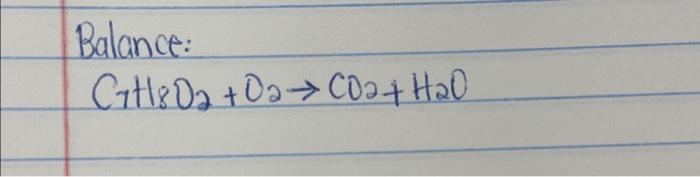 Balance:
C₇H₈O₂ + O₂ → CO₂ + H₂O